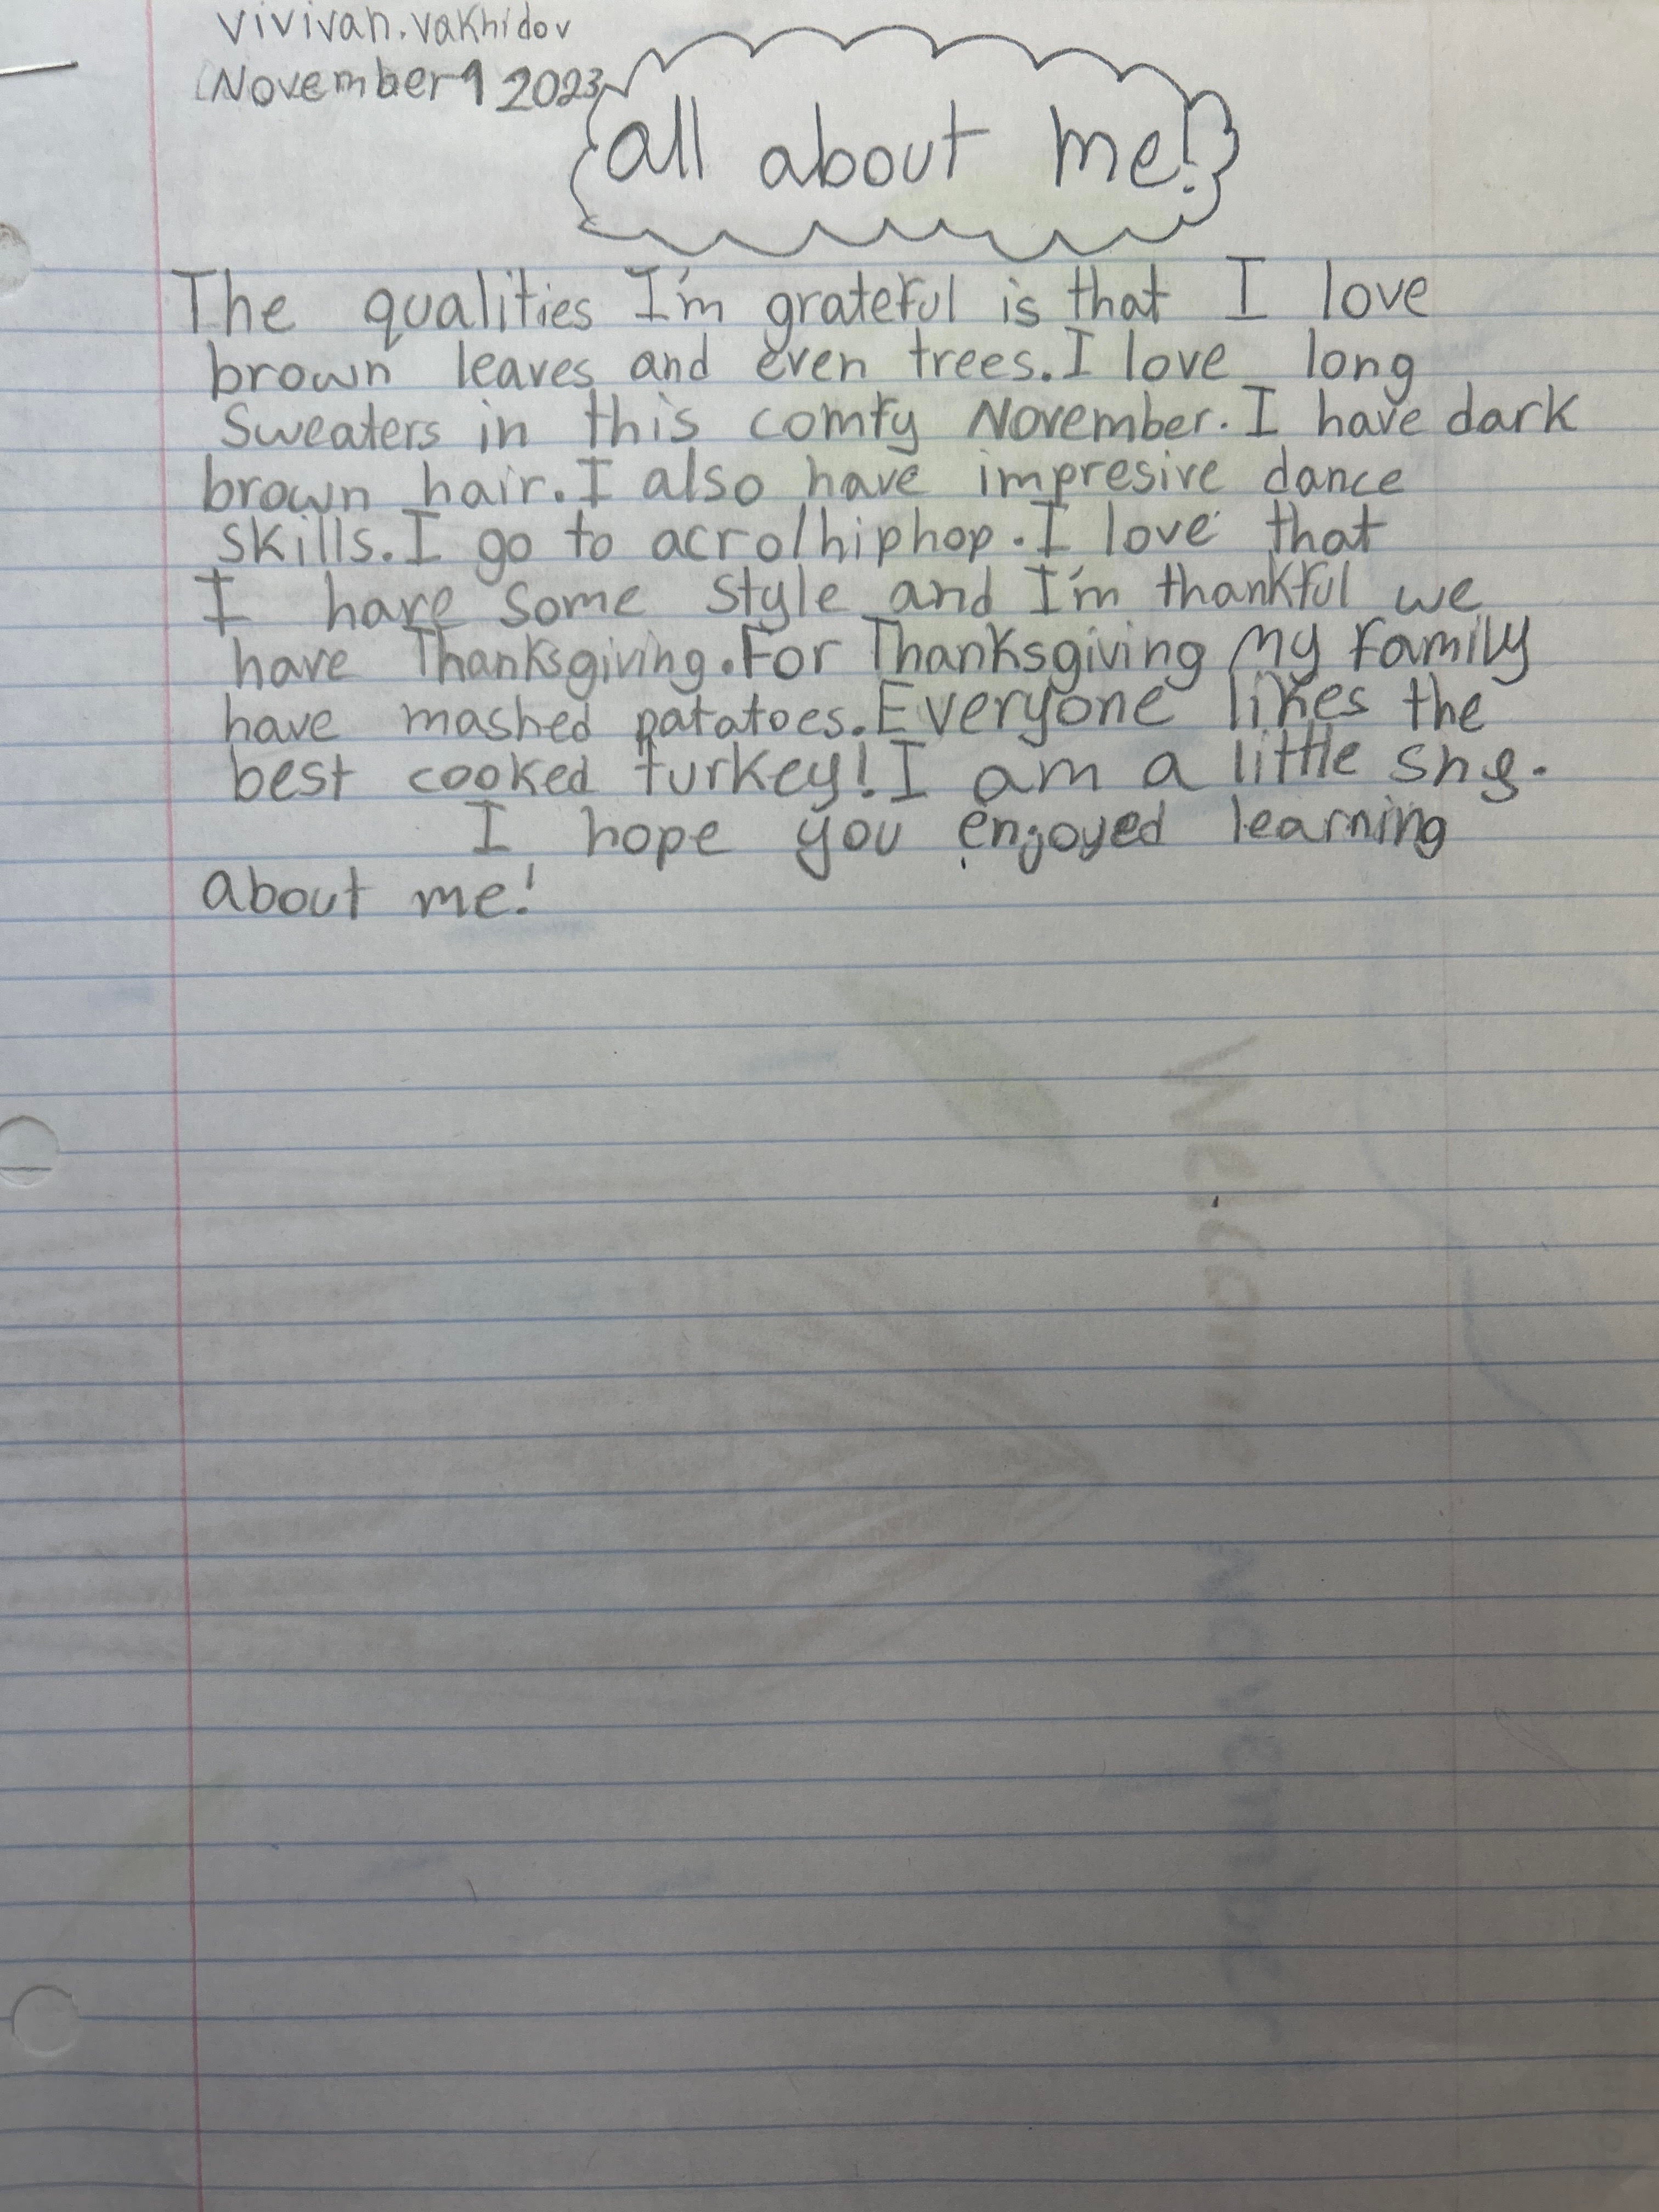 vivivan.vakhidov
November 9 2023
all about me!
The qualities I'm grateful is that I love
brown leaves and even trees. I love long
Sweaters in this comfy November. I have dark
brown hair. I also have impresive dance
skills. I go to acro/hiphop. I love that
I have some style and I'm thankful we
have Thanksgiving. For Thanksgiving my family
have mashed patatoes. Everyone likes the
best cooked turkey! I am a little shy.
I hope you enjoyed learning
about me!
Welcome
November